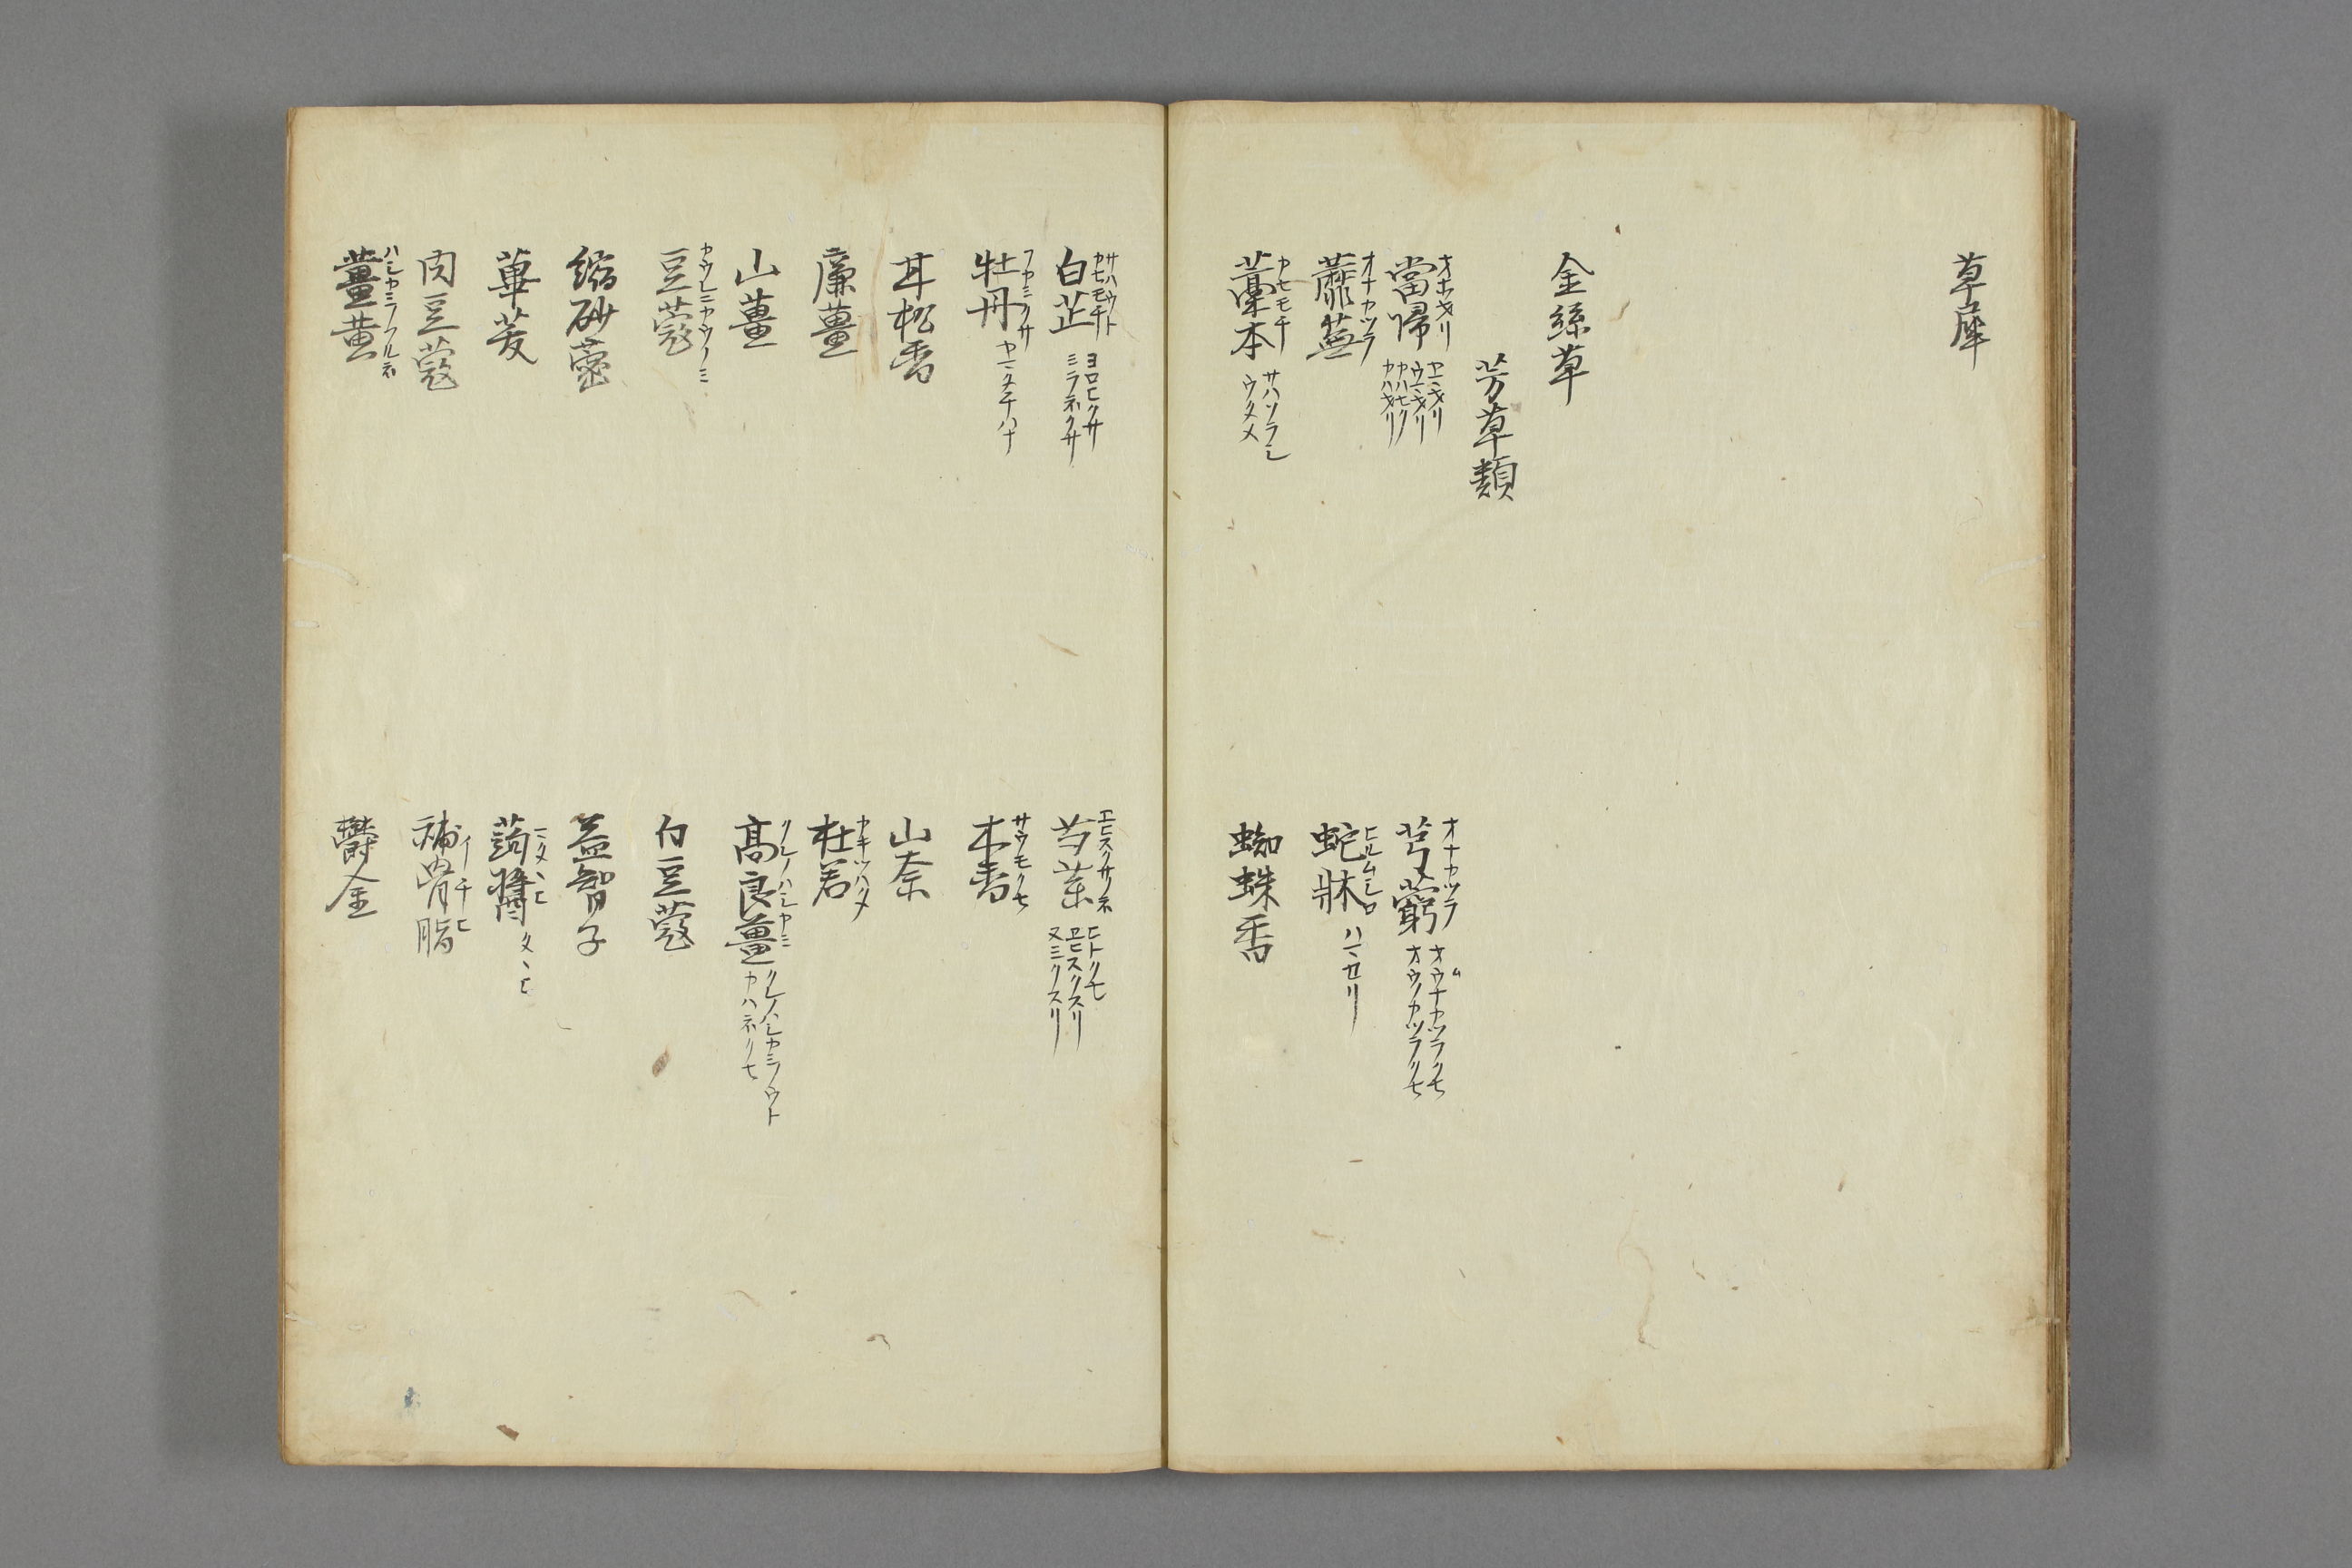 草犀
金絲草
芳草類
當歸 オホセリ ヤマセリ ウマセリ カハセリ
芎藭 オナカツラ オウナカツラクセ オウノカツラクセ
蘼蕪 オナカツラ
蛇牀 ヒルムシロ ハマセリ
藁本 カセモチ サハソラシ ウタメ
蜘蛛香
白芷 サハウト カセモチ ヨロヒクサ ミラネクサ
芍藥 エヒスクサノネ エヒスクスリ ヌミクスリ
牡丹 フカミクサ ヤマタチハナ
木香 サウモクセ
甘松香
山柰
廉薑
杜若 カキツハタ
山薑
高良薑 クレノハシカミ クレノハシカミノウト カハネクセ
豆蔲 カウレンカウノミ
白豆蔲
縮砂蔤
益智子
蓽茇
蒟醬 ワタヽヒ タヽヒ
肉豆蔲
補骨脂
薑黄 ハシカミノフルネ
鬱金